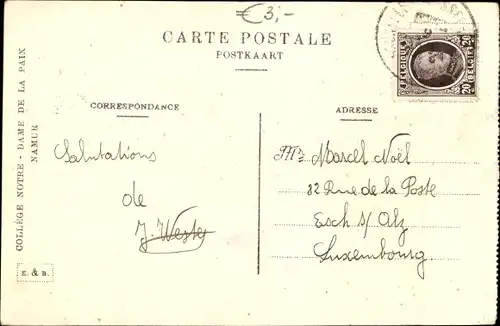 €3,-
CARTE POSTALE
POSTKAART
BELGIQUE
BELGIË
20
20
CORRESPONDANCE
ADRESSE
Salutations
de
J. Wester
Mr Marcel Noël
82 Rue de la Poste
Esch s/ Alz
Luxembourg
COLLÈGE NOTRE - DAME DE LA PAIX
NAMUR
E. & B.